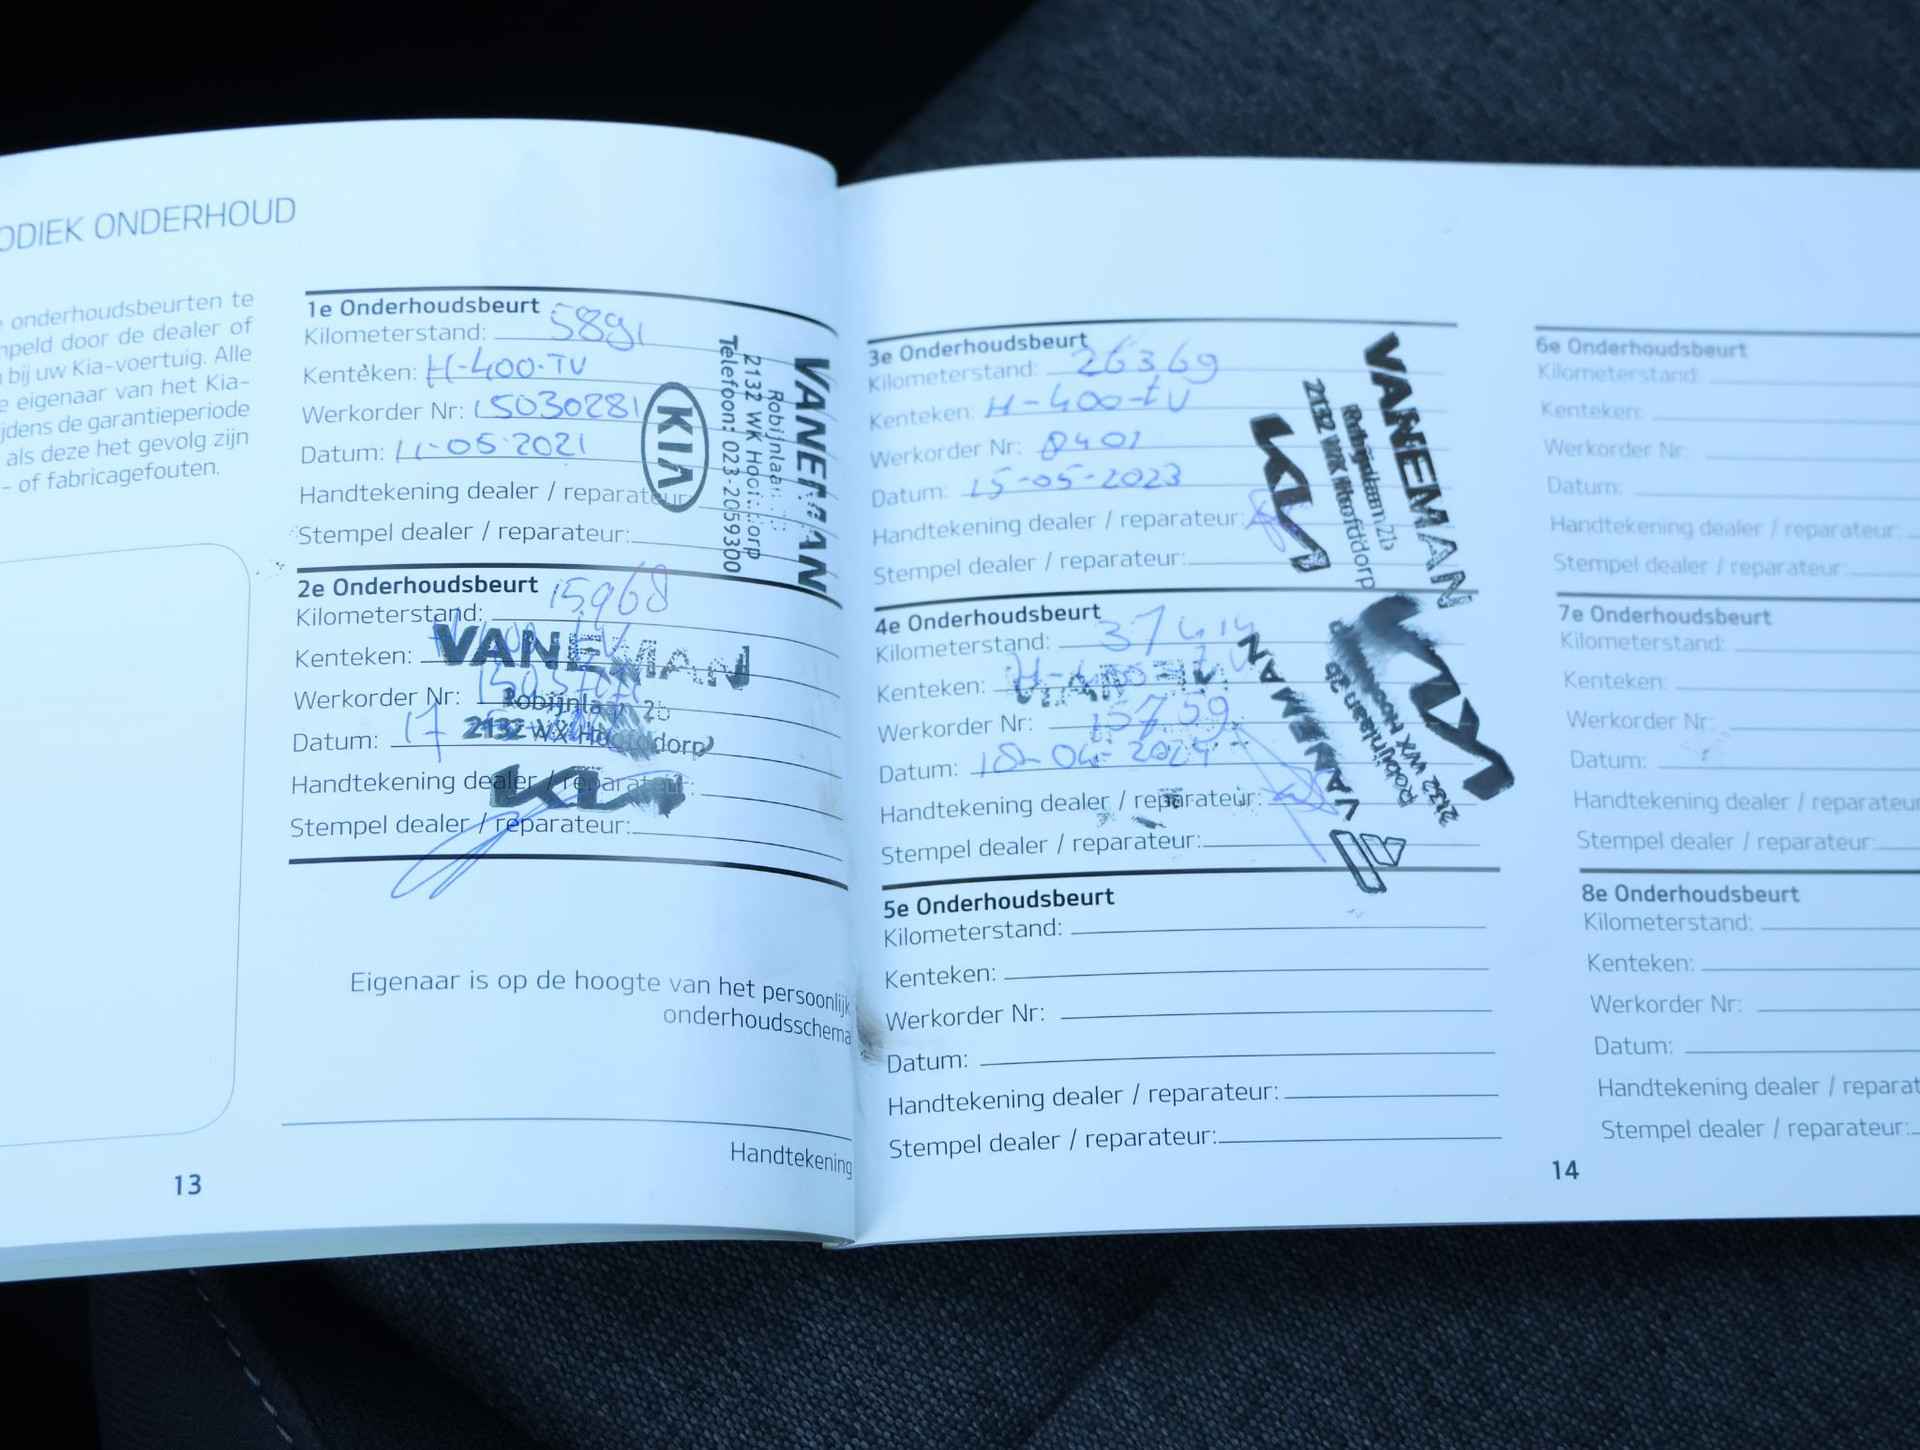 ODIEK ONDERHOUD
onderhoudsbeurten te
mpeld door de dealer of
bij uw Kia-voertuig. Alle
e eigenaar van het Kia-
jdens de garantieperiode
als deze het gevolg zijn
- of fabricagefouten.
13
1e Onderhoudsbeurt
Kilometerstand: 5891
Kenteken: H-400-TV
Werkorder Nr: 15030281
Datum: 11-05-2021
Handtekening dealer / reparateur
Stempel dealer / reparateur:
VANEMAN
Robijnlaan
2132 WK Hoofddorp
Telefoon: 023-2059300
KIA
2e Onderhoudsbeurt
Kilometerstand: 15968
Kenteken:
Werkorder Nr:
Datum: 17
Handtekening dealer / reparateur:
Stempel dealer / reparateur:
VANEMAN
Robijnlaan 2b
2132 WX Hoofddorp
KIA
Eigenaar is op de hoogte van het persoonlijk
onderhoudsschema
Handtekening
3e Onderhoudsbeurt
Kilometerstand: 26369
Kenteken: H-400-tV
Werkorder Nr: 8401
Datum: 15-05-2023
Handtekening dealer / reparateur:
Stempel dealer / reparateur:
VANEMAN
Robijnlaan 2b
2132 WK Hoofddorp
KIA
4e Onderhoudsbeurt
Kilometerstand: 37414
Kenteken: H-400-TV
Werkorder Nr: 15759
Datum: 18-04-2024
Handtekening dealer / reparateur:
Stempel dealer / reparateur:
VANEMAN
Robijnlaan 2b
2132 WX Hoofddorp
KIA
5e Onderhoudsbeurt
Kilometerstand:
Kenteken:
Werkorder Nr:
Datum:
Handtekening dealer / reparateur:
Stempel dealer / reparateur:
6e Onderhoudsbeurt
Kilometerstand:
Kenteken:
Werkorder Nr:
Datum:
Handtekening dealer / reparateur:
Stempel dealer / reparateur:
7e Onderhoudsbeurt
Kilometerstand:
Kenteken:
Werkorder Nr:
Datum:
Handtekening dealer / reparateur
Stempel dealer / reparateur:
8e Onderhoudsbeurt
Kilometerstand:
Kenteken:
Werkorder Nr:
Datum:
Handtekening dealer / reparat
Stempel dealer / reparateur:
14